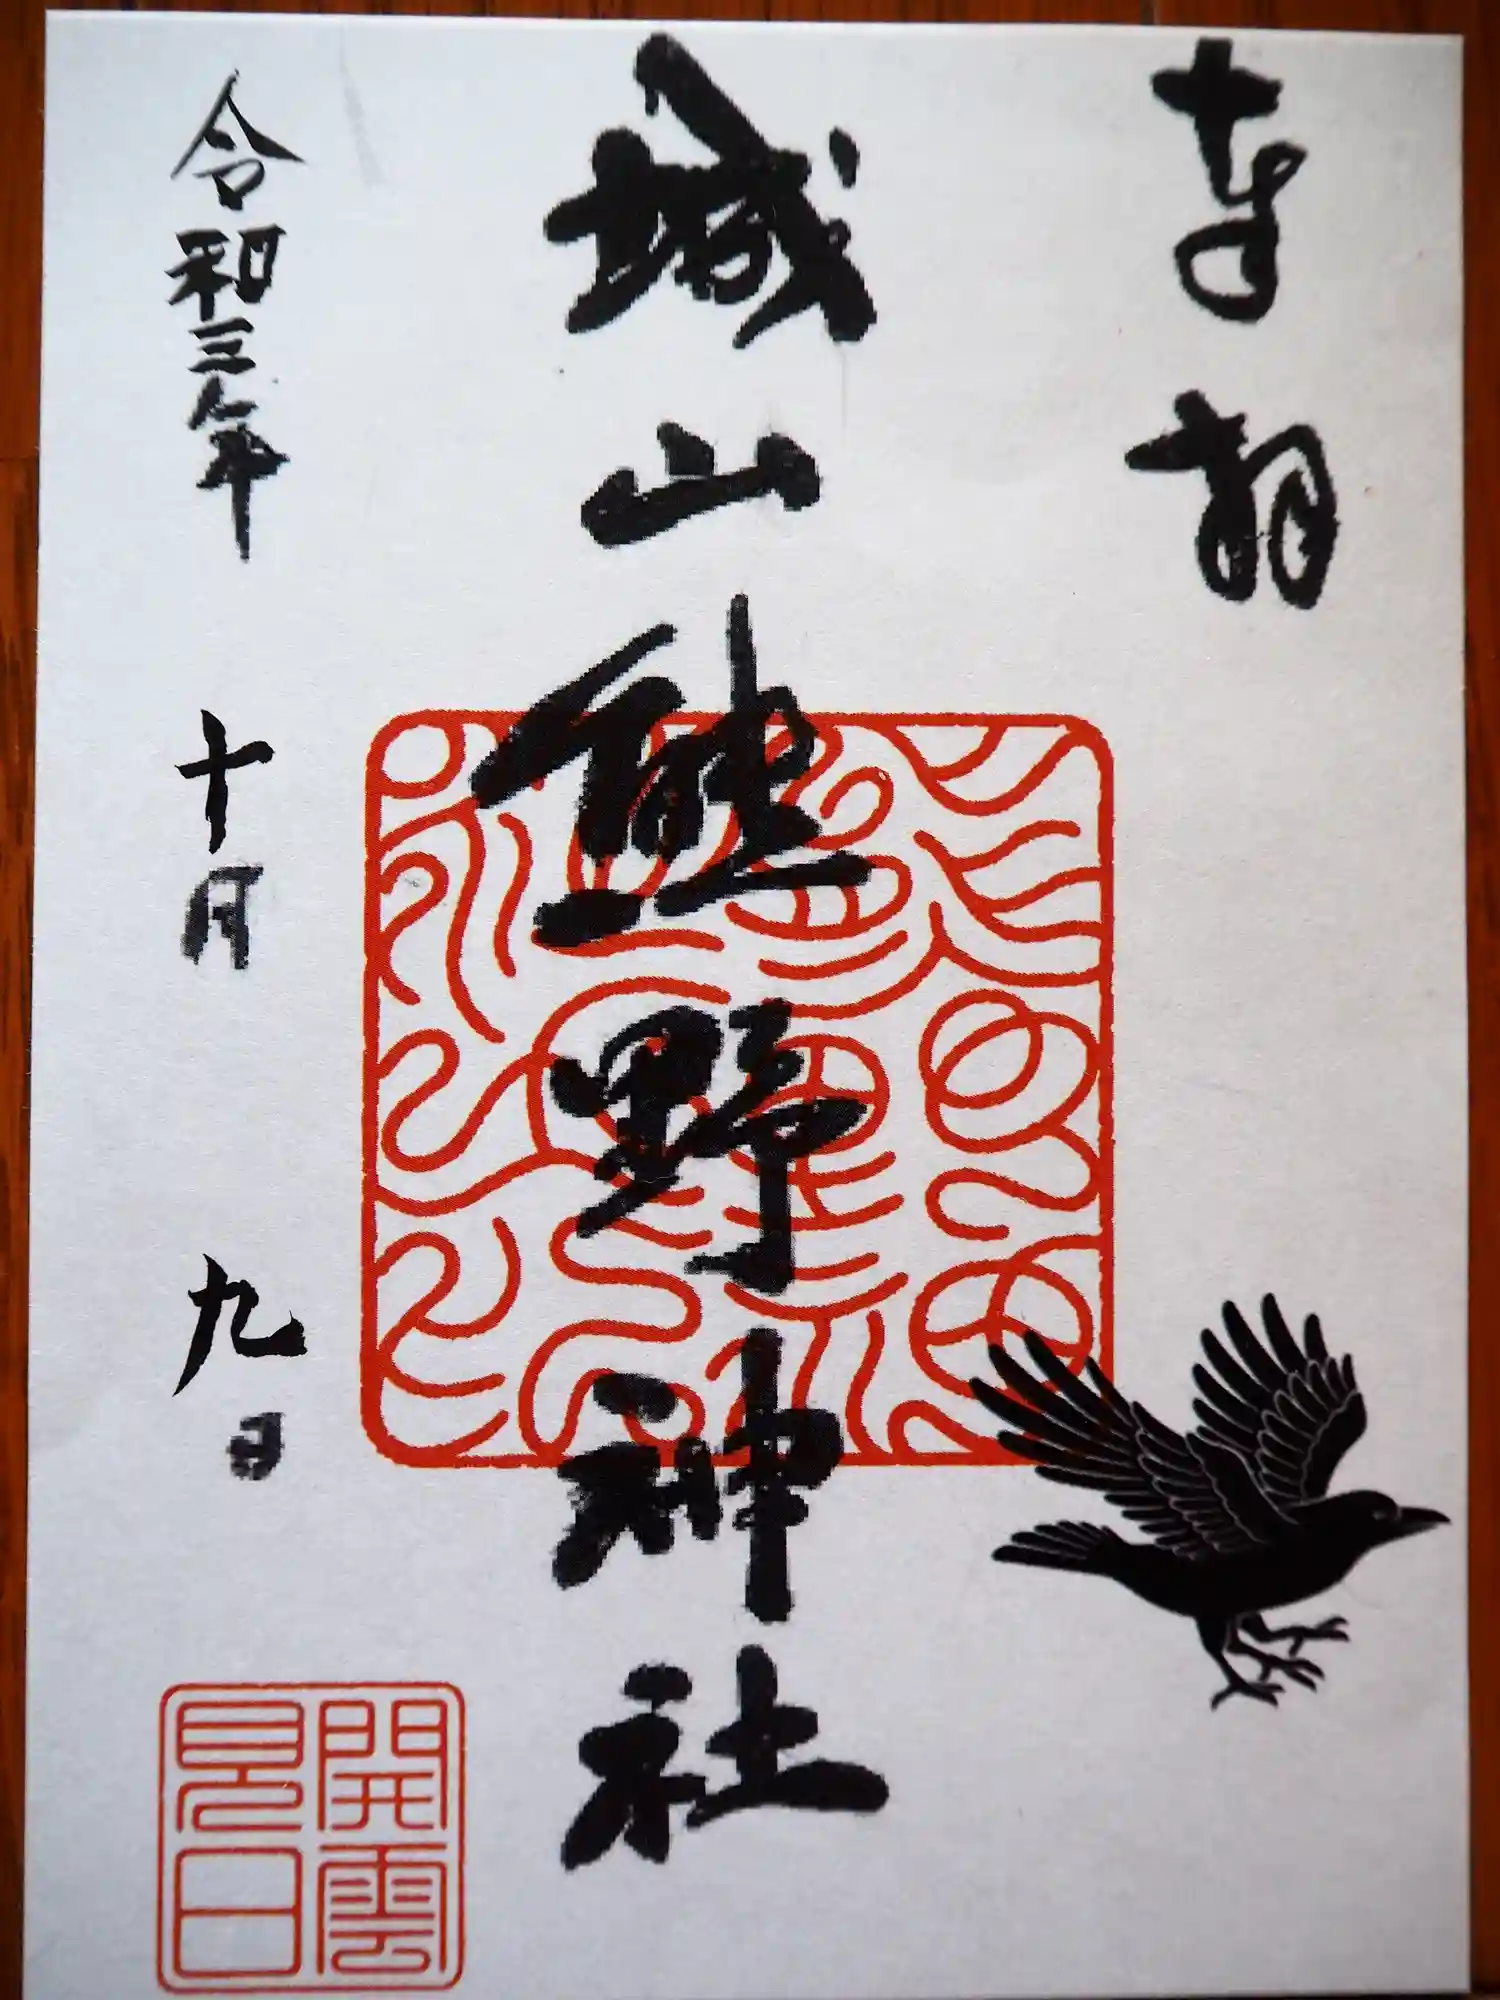 奉拝
城山熊野神社
令和三年 十月 九日
開雲
見日